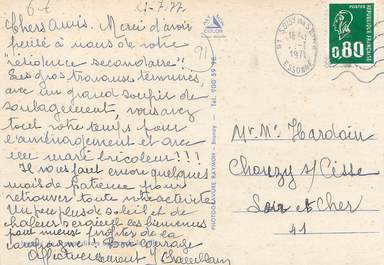 -7-77
Chers amis. Merci d'avoir
pensé à nous de votre
"résidence secondaire"!
Les gros travaux terminés,
avec un grand soupir de
soulagement, vous avez
tout votre temps pour
l'aménagement et avec
un mari bricoleur!!!
Il vous faut encore quelques
mois de patience pour
retrouver toute votre
Un peu plus de soleil et de
chaleur seraient les bienvenus
pour mieux profiter de la
campagne! Bon courage
Affectueusement
91
RAY
COLOR
PHOTOGRAVURE RAYMON - Brunoy - Tél. 900 59 96
18 H
1977
ESSONNE
POSTES
0,80
RÉPUBLIQUE FRANÇAISE
Mr. Me Hardoin
Chouzy s/Cisse
Loir et Cher
41